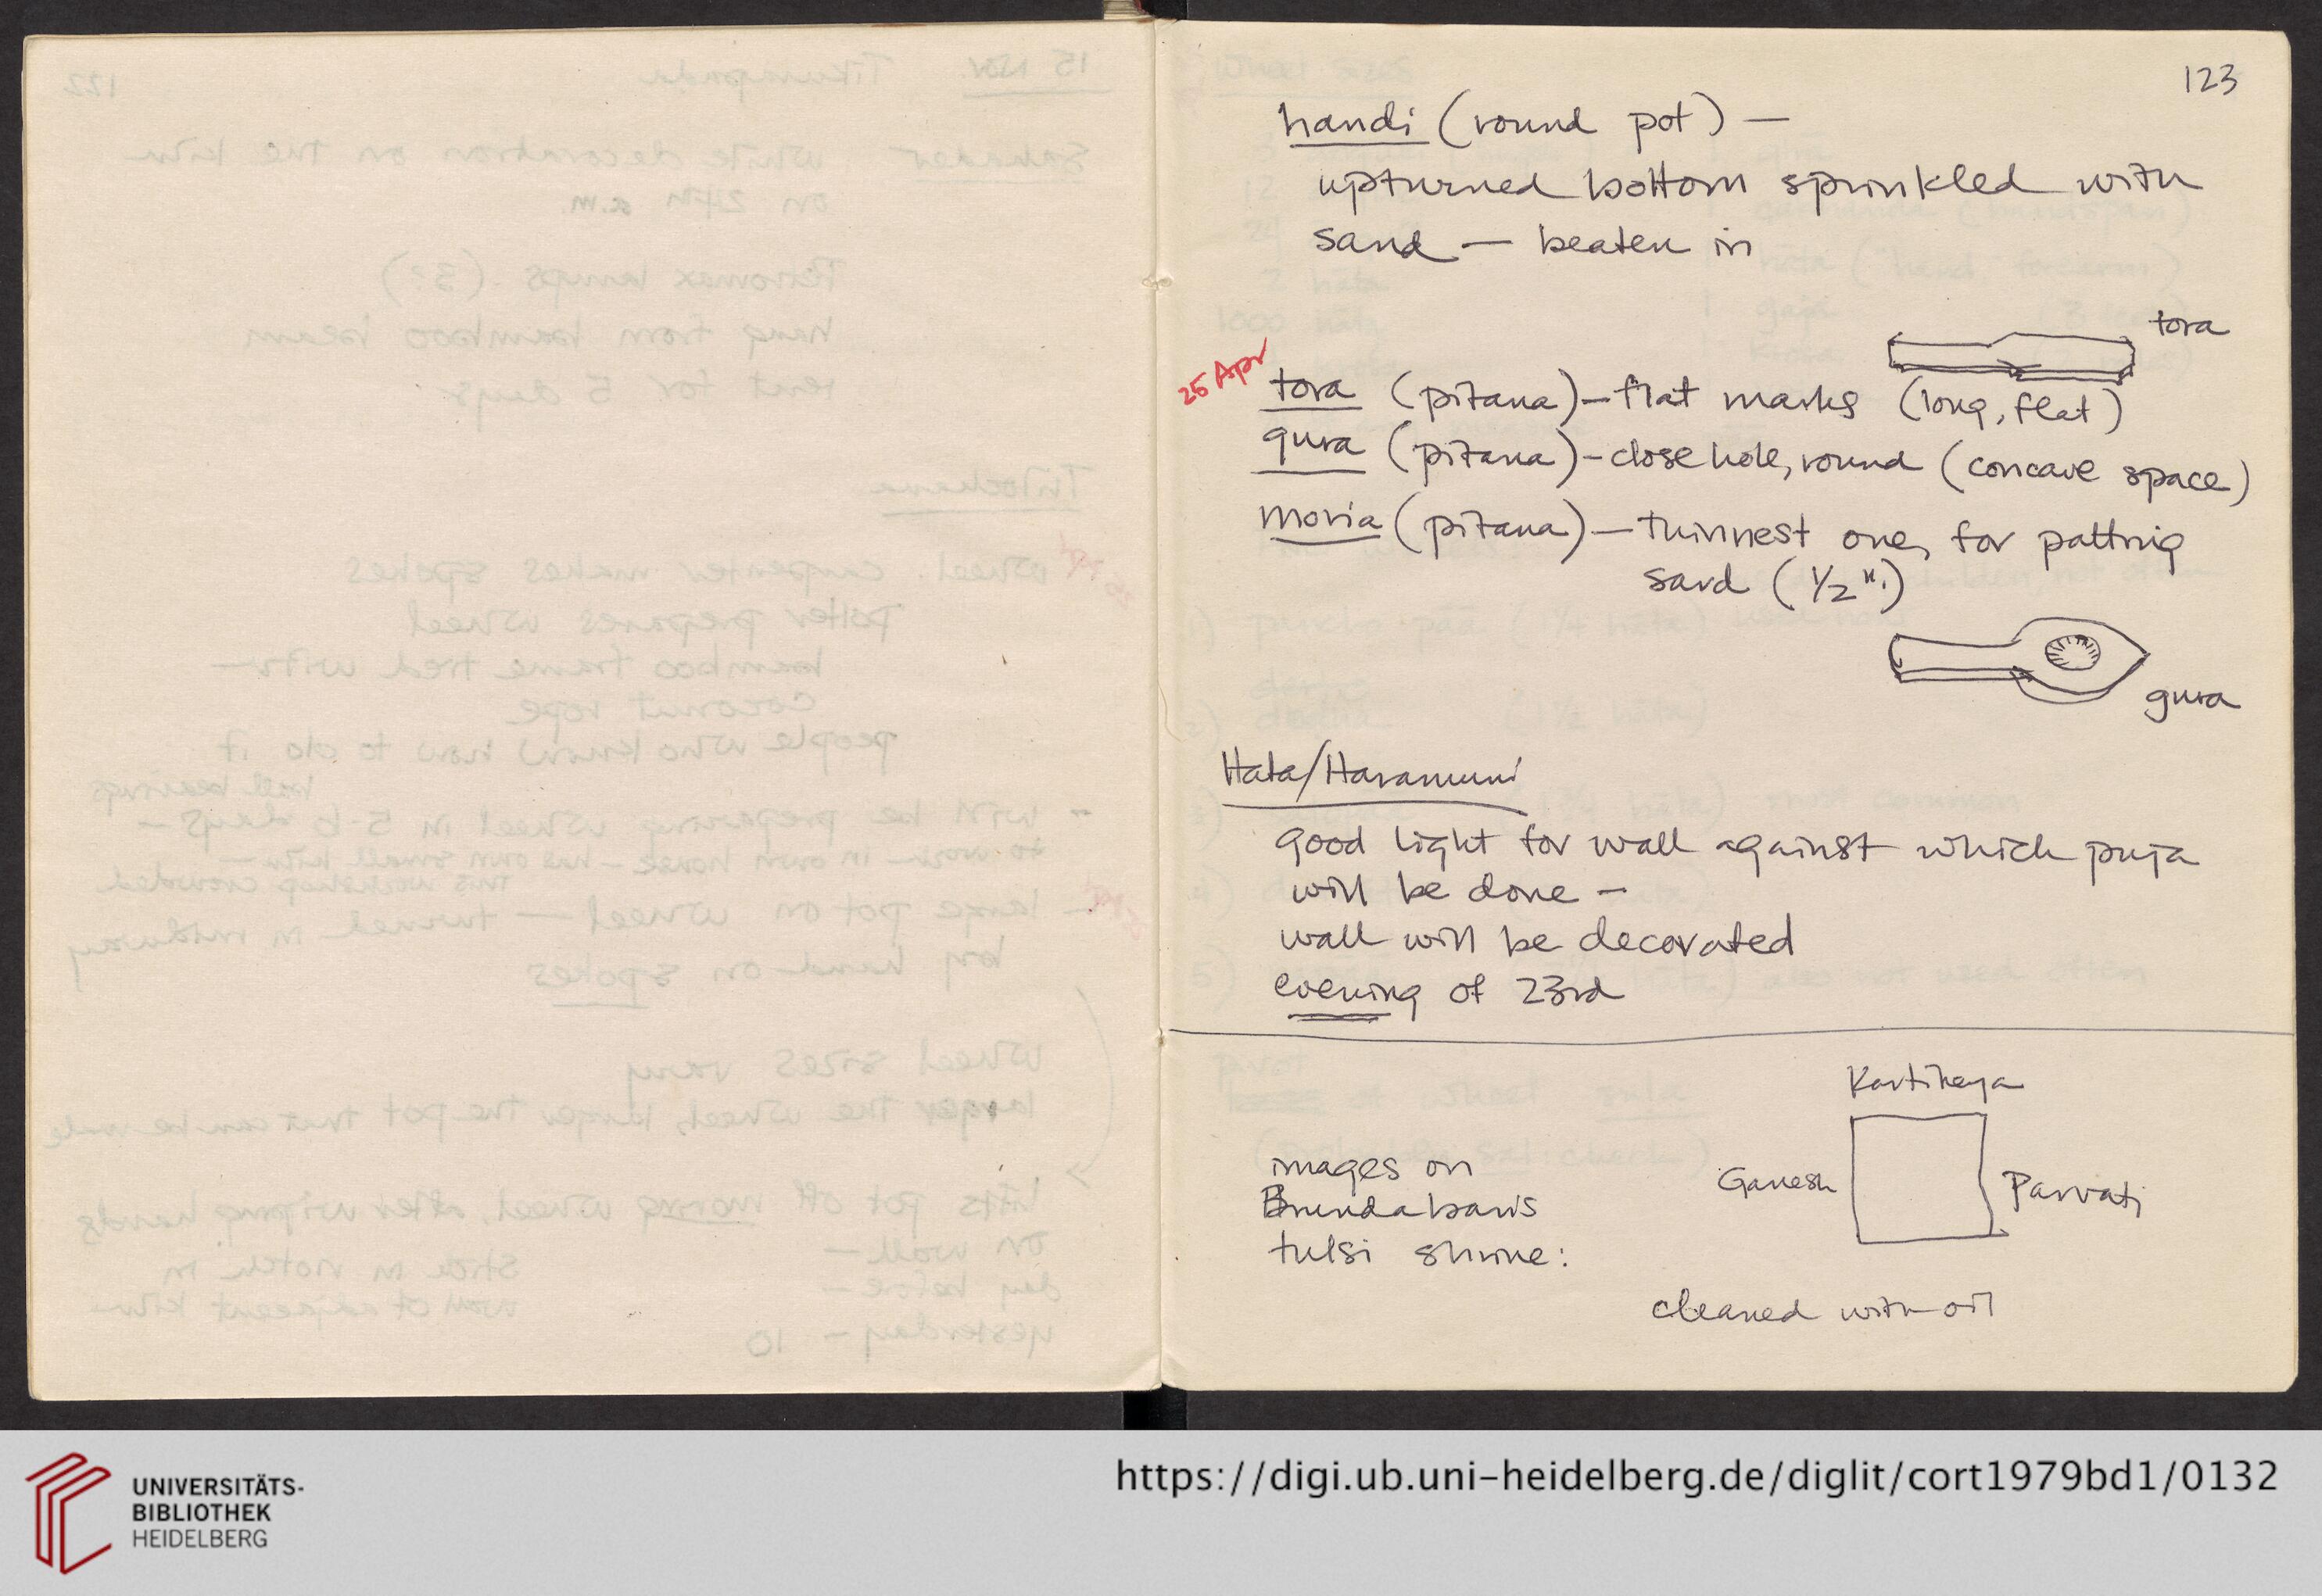 123
handi (round pot) —
upturned bottom sprinkled with
sand — beaten in
tora
25 Apr
tora (pitana) — flat marks (long, flat)
gura (pitana) — close hole, round (concave space)
moria (pitana) — thinnest one, for patting
sand (1/2".)
gura
Hata/Haramuni
good light for wall against which puja
will be done —
wall will be decorated
evening of 23rd
Kartikeya
images on
Ganesh
Parvati
Brundaban's
tulsi shrine:
cleaned with oil
UNIVERSITÄTS-
BIBLIOTHEK
HEIDELBERG
https://digi.ub.uni-heidelberg.de/diglit/cort1979bd1/0132